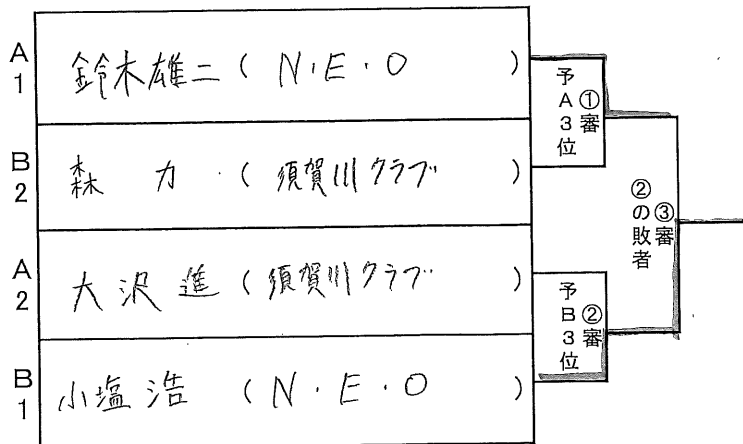 A1 鈴木雄二 ( N・E・O )
B2 森 力 ( 須賀川クラブ )
A2 大沢進 ( 須賀川クラブ )
B1 小塩浩 ( N・E・O )
①審
予A3位
②審
予B3位
③審
②の敗者